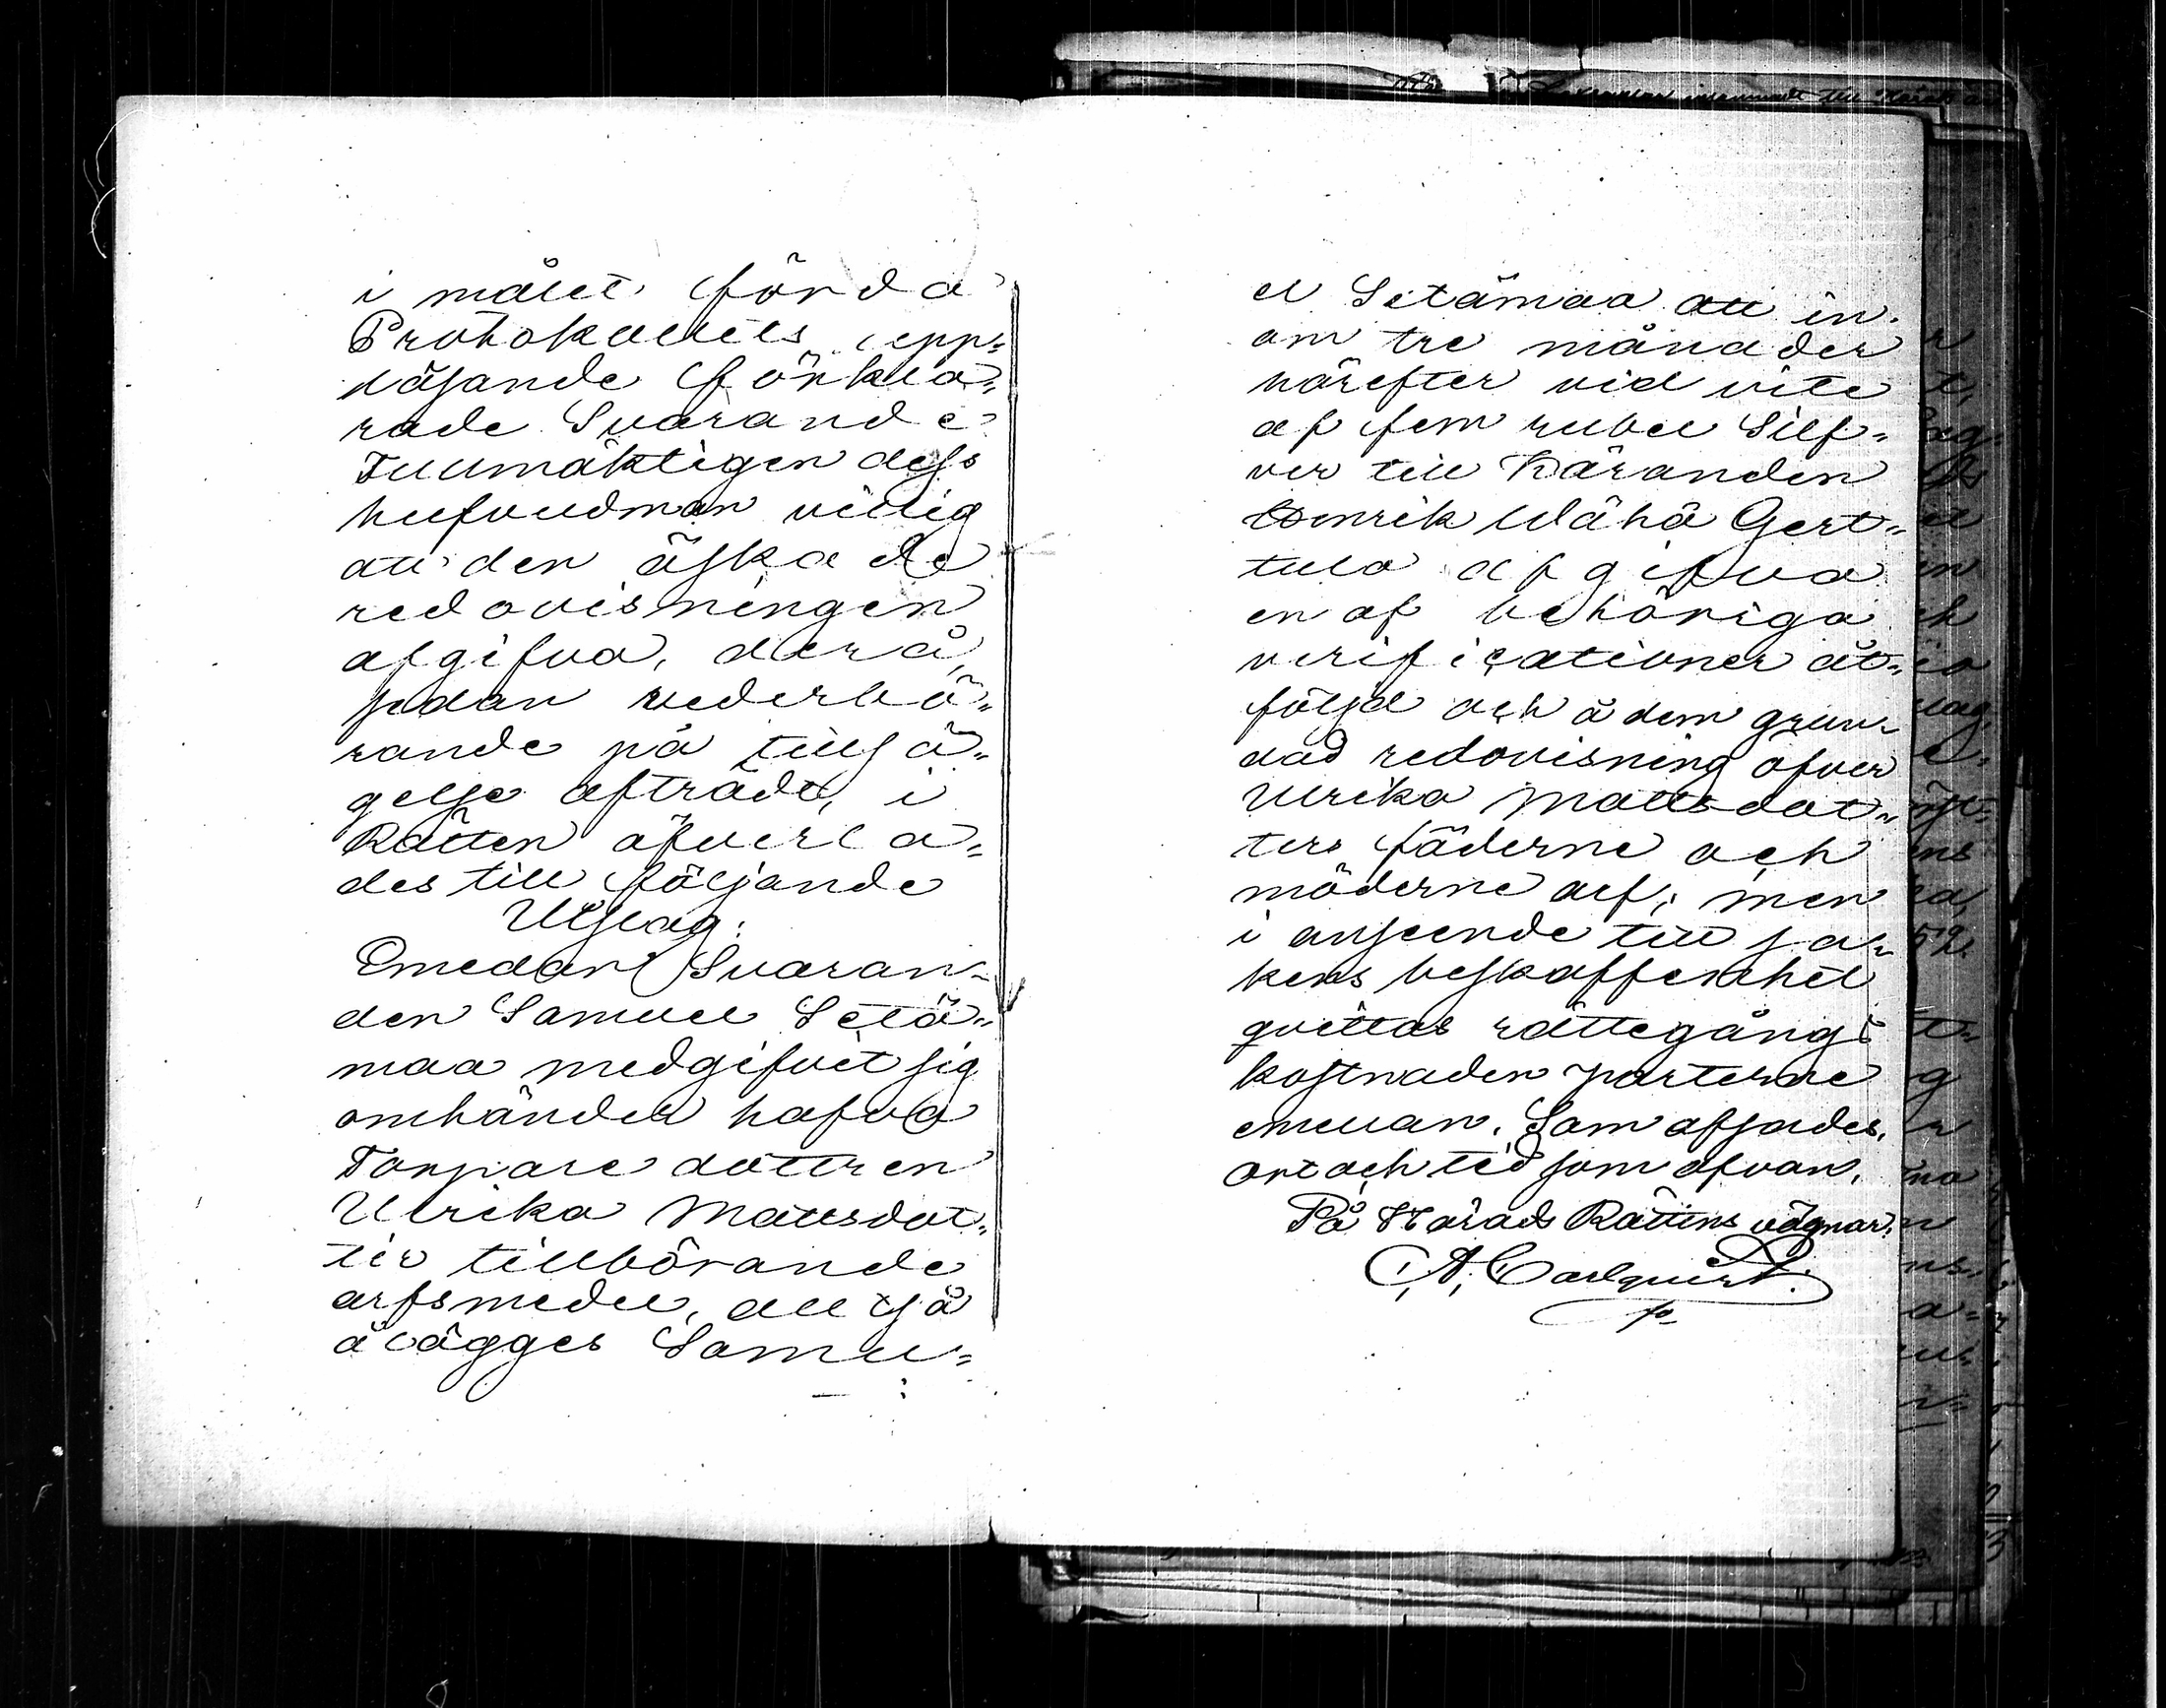 i målet förda
Protokollets upp=
läsande förkla=
rade Svarande
Fullmäktigen dess
hufvudman villig
att den äskade
redovisningen
afgifva, derå,
sedan vederbö=
rande på tillsä=
gelse afträdt, i
Rätten öfverla=
des till följande
Utslag:
Emedan Svaran=
den Samuel Setä=
maa medgifvit sig
omhänder hafva
Torpare dottren
Ulrika Mattsdot=
ter tillhörande
arfsmedel, alltså
ålägges Samu=
el Setämaa att in=
om tre månader
härefter vid vite
af fem rubel Silf=
ver till Käranden
Henrik Wähä Gert=
tula afgifva
en af behöriga
verificationer åt=
följd och å dem grun=
dad redovisning öfver
Ulrika Mattsdot=
ters fäderne och
möderne arf; men
i anseende till sa=
kens beskaffenhet
qvittas rättegångs
kostnaden parterne
emellan. Som afsades,
ort och tid som ofvan.
På Härads Rättens vägnar:
A. Carlquist.